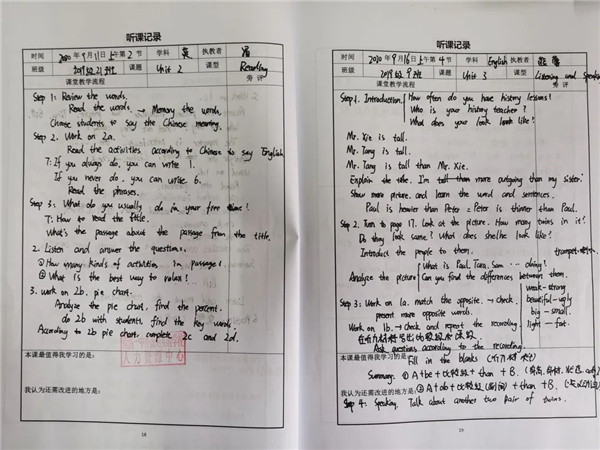 听课记录
时间 2020年9月11日上午第2节 学科 英 执教者
班级 2019级21班 课题 Unit 2 课型 Reading
课堂教学流程 旁评
Step 1: Review the words.
Read the words. → Memory the words.
Choose students to say the Chinese meaning.
Step 2. Work on 2a.
Read the activities according to Chinese to say English
T: If you always do, you can write 1.
If you never do, you can write 6.
Read the phrases.
Step 3: What do you usually do in your free time?
T: How to read the title.
What's the passage about the passage from the title.
2. Listen and answer the questions.
① How many kinds of activities in passage?
② What is the best way to relax?
3. work on 2b. pie chart.
Analyze the pie chart, find the percent.
do 2b with students, find the key words.
According to 2b pie chart, complete 2c and 2d.
本课最值得我学习的是:
人力资源中心
我认为还需改进的地方是:
18
听课记录
时间 2020年9月16日上午第4节 学科 English 执教者
班级 2019级9班 课题 Unit 3 课型 Listening and Speaking
课堂教学流程 旁评
Step 1. Introduction. How often do you have history lessons?
Who is your history teacher?
What does your look look like?
Mr. Xie is tall.
Mr. Tang is tall.
Mr. Tang is tall than Mr. Xie.
Explain the title. I'm tall than more outgoing than my sister.
Show more picture. and learn the word and sentences.
Paul is heavier than Peter. Peter is thinner than Paul.
Step 2. Turn to page 17. Look at the picture. How many twins in it?
Do they look same? What does she/he look like?
Introduce the people to them.
What is Paul, Tara, Sam ... doing?
Analyze the picture Can you find the differences between them.
weak-strong
Step 3: Work on 1a. match the opposite. → check, beautiful-ugly
present more opposite words. big-small.
Work on 1b. → check and repeat the recording. light-fat.
Ask questions according to the recording.
本课最值得我学习的是: Fill in the blanks
Summary. ① A + be + 比较级 + than + B.
我认为还需改进的地方是: ② A + do + 比较级 + than + B.
Step 4: Speaking. Talk about another two pair of twins.
19